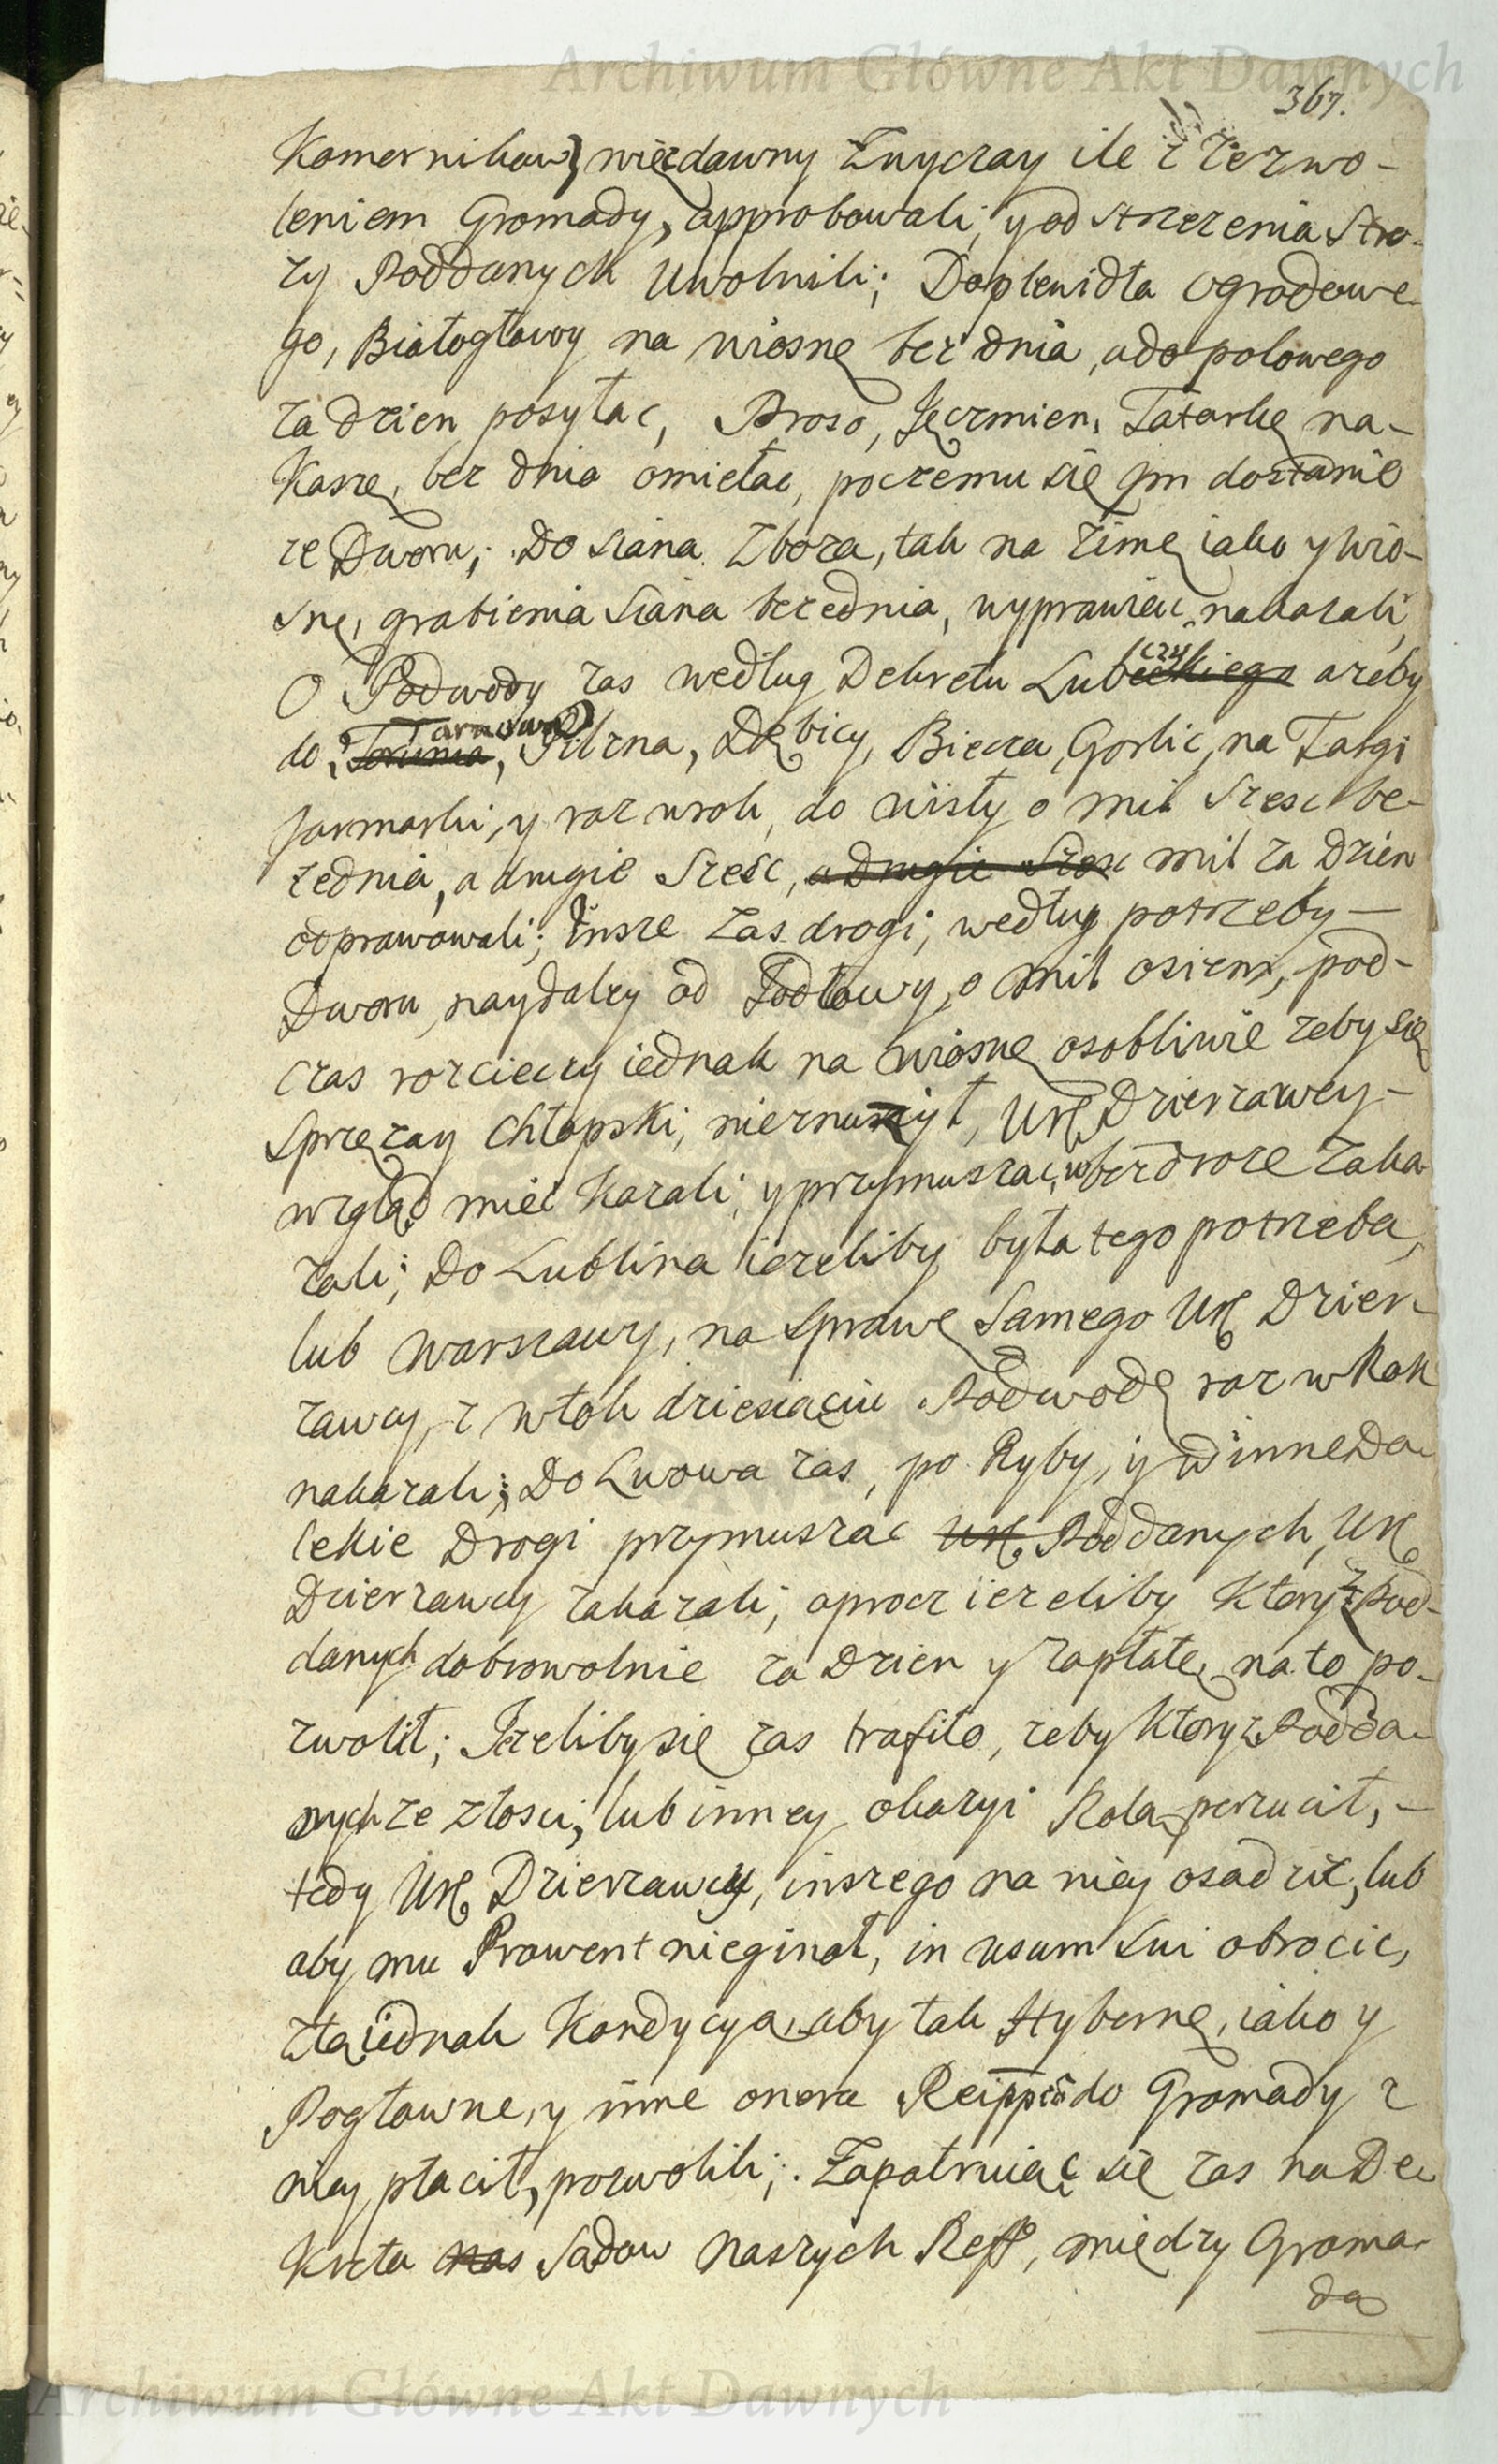 Archiwum Główne Akt Dawnych
367.
Komernikow, więc dawny Zwyczay ile z zezwo-
leniem Gromady, approbowali, y od strzezenia Stro-
zy Poddanych uwolnili; Do plewidła ogrodowe-
go, Białogłowy na wiosnę bez dnia, a do polowego
za dzien posyłac, Proso, Jęczmien, Tatarkę na-
Kaszę, bez dnia omiełac, poczemu się Jm dostanie
ze Dworu; Do siana Zboza, tak na zimę iako y wio-
snę, grabienia Siana bezednia, wyprawiac nakazali,
O Podwody zas według Dekretu Lubeckiego czy azeby
do Torunia Tarnowa, Pilzna, Dębicy, Biecza, Gorlic, na Targi
Jarmarki, y raz wrok, do wisły o mil Szesc be-
zednia, a drugie Szesc, a drugie Szesc mil za Dzien
odprawowali; Insze zas drogi, według potrzeby-
Dworu, naydaley od Jodłowy, o mil osiem, pod-
czas rozcieczy iednak na wiosnę osobliwie zeby się
Sprzęzay chłopski, nieznuzyt, Url Dzierzawcy-
wzgląd miec Kazali, y przymuszac, w bezdroze zaka
zali; Do Lublina iezeliby była tego potrzeba,
lub Warszawy, na Sprawę Samego Url Dzier-
zawcy, z włok dziesiąciu Podwodę raz w Rok
nakazali; Do Lwowa zas, po Ryby, y w inne Da-
lekie Drogi przymuszac Url Poddanych, Url
Dzierzawcy zakazali, oprocz iezeliby Ktory z Pod-
danych dobrowolnie za Dzien y zapłatę, na to po-
zwolił; Jezeliby się zas trafiło, zeby Ktory z Podda-
nych ze złosci, lub inney okazyi Rolą porzucił, -
tedy Url Dzierzawcy, inszego na niey osadzic, lub
aby mu Prowent nieginoł, in usum Sui obrocic,
ztą iednak Kondycyą, aby tak Hybernę, iako y
Pogłowne, y inne onera Reippcæ do Gromady z
niey płacił, pozwolili; Zapatruiąc się zas na De-
Kreta nas Sądow Naszych Reff, między Groma-
dą
Archiwum Główne Akt Dawnych